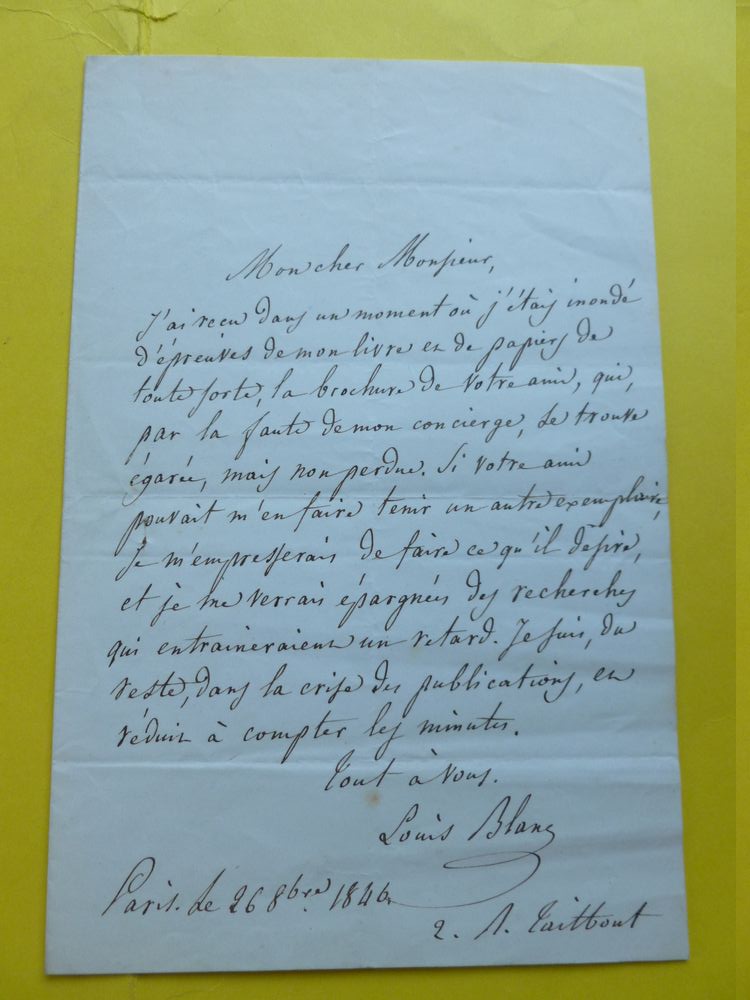 Mon cher Monsieur,
J'ai reçu dans un moment où j'étais inondé
d'épreuves de mon livre et de papiers de
toute sorte, la brochure de votre ami, qui,
par la faute de mon concierge, se trouve
égarée, mais non perdue. Si votre ami
pouvait m'en faire tenir un autre exemplaire,
je m'empresserais de faire ce qu'il désire,
et je me verrais épargnées des recherches
qui entraineraient un retard. Je suis, du
reste, dans la crise des publications, et
réduit à compter les minutes.
Tout à vous.
Louis Blanc
Paris. Le 26 8bre 1846
2. r. Taitbout